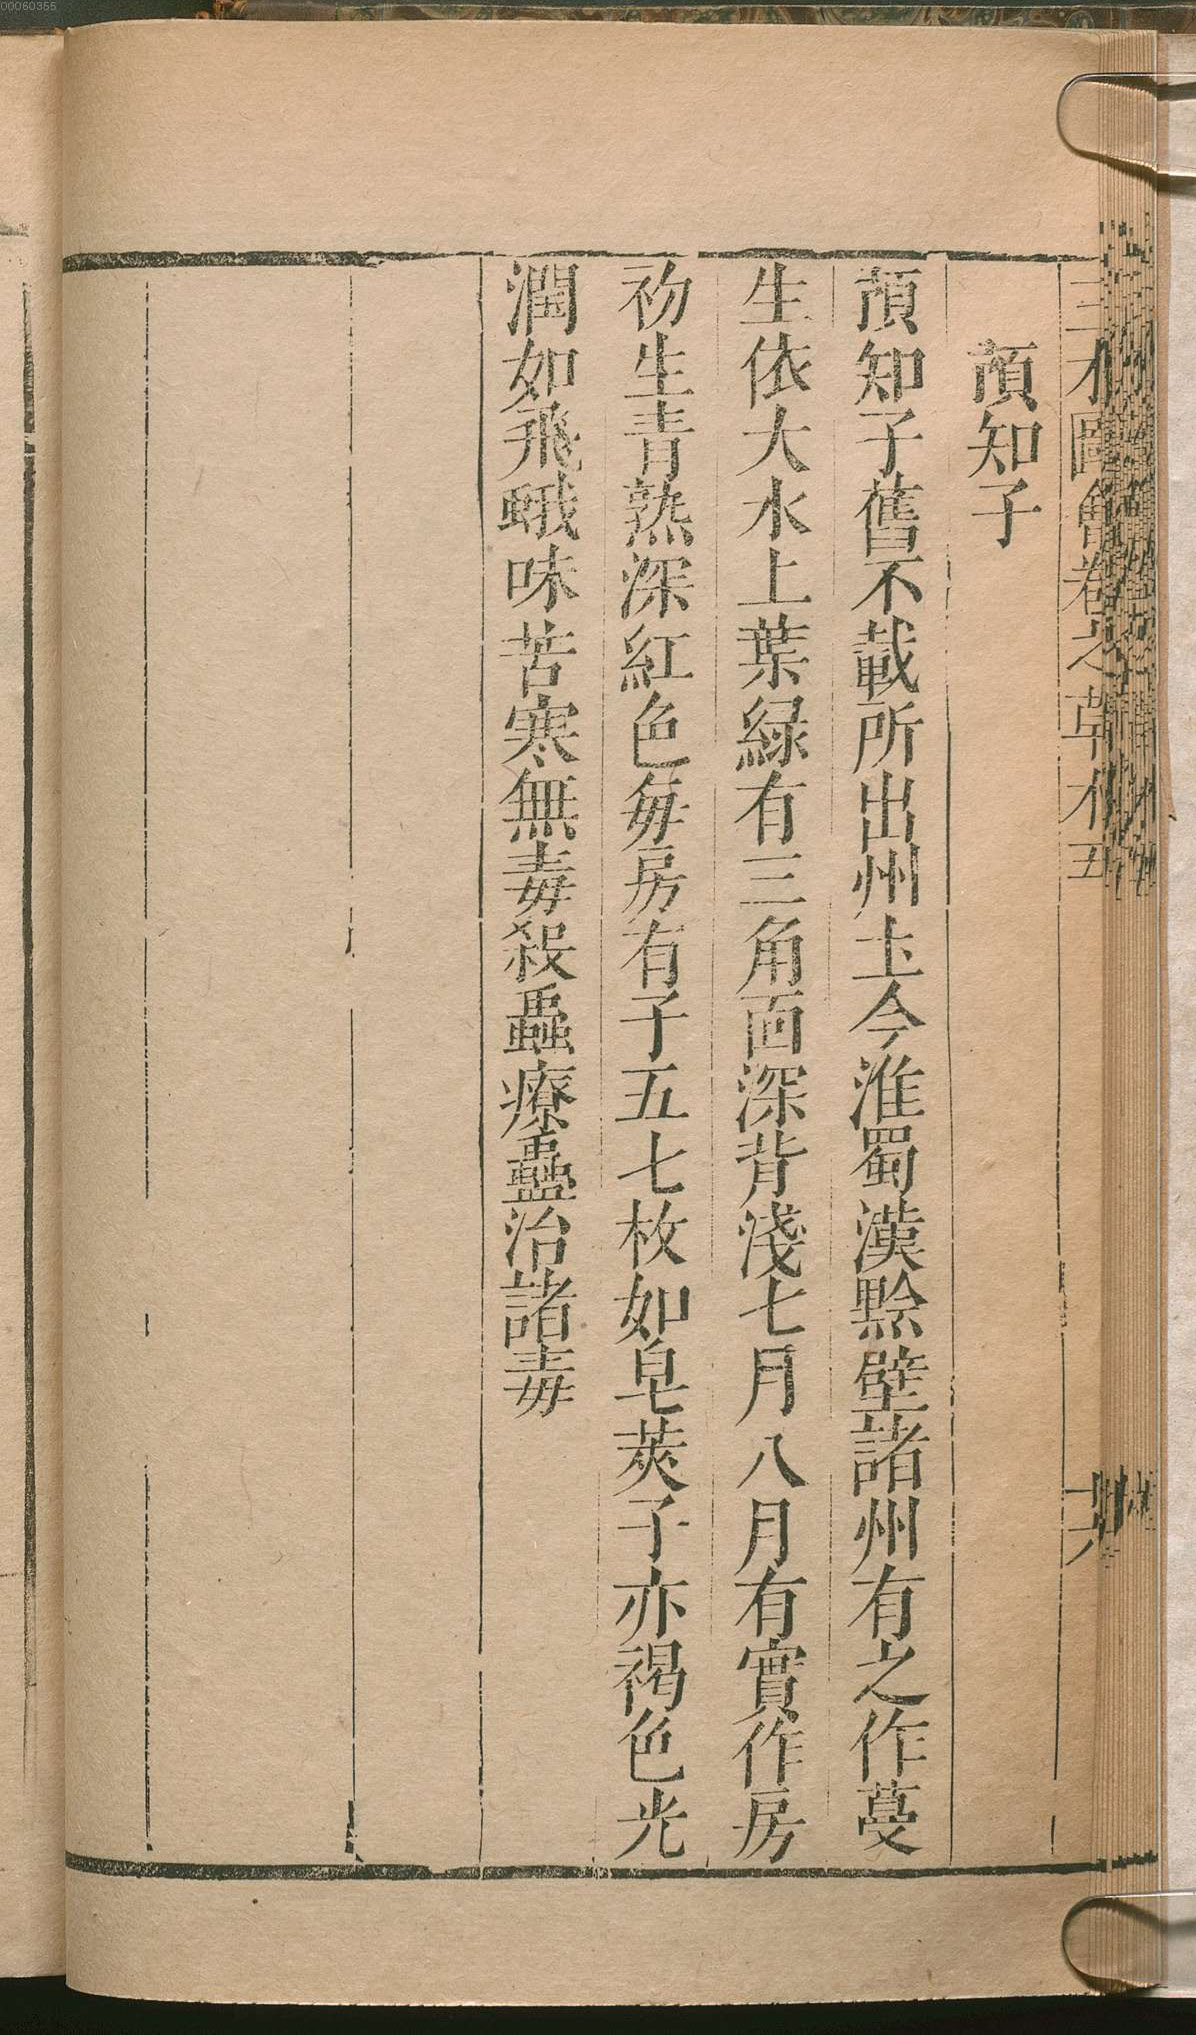 00060355
三才圖會卷之草木五
十六
預知子
預知子舊不載所出州土今淮蜀漢黔壁諸州有之作蔓
生依大木上葉緑有三角面深背淺七月八月有實作房
初生青熟深紅色每房有子五七枚如皂莢子亦褐色光
潤如飛蛾味苦寒無毒殺蟲療蠱治諸毒